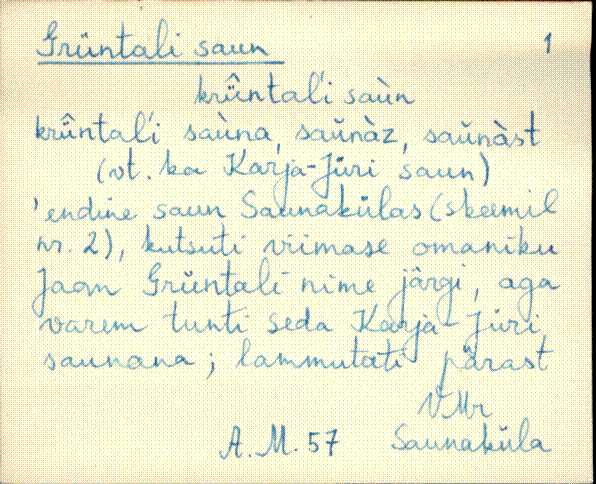 Grüntali saun 1
krű̂ntaĺi saùn
krű̂ntaĺi saùna, saŭnàz, saŭnàst
(vt. ka Karja-Jüri saun)
'endine saun Saunakülas (skeemil
nr. 2), kutsuti viimase omaniku
Jaan Grüntali nime järgi, aga
varem tunti seda Karja-Jüri
saunana; lammutati pärast
VMr
A.M. 57 Saunaküla